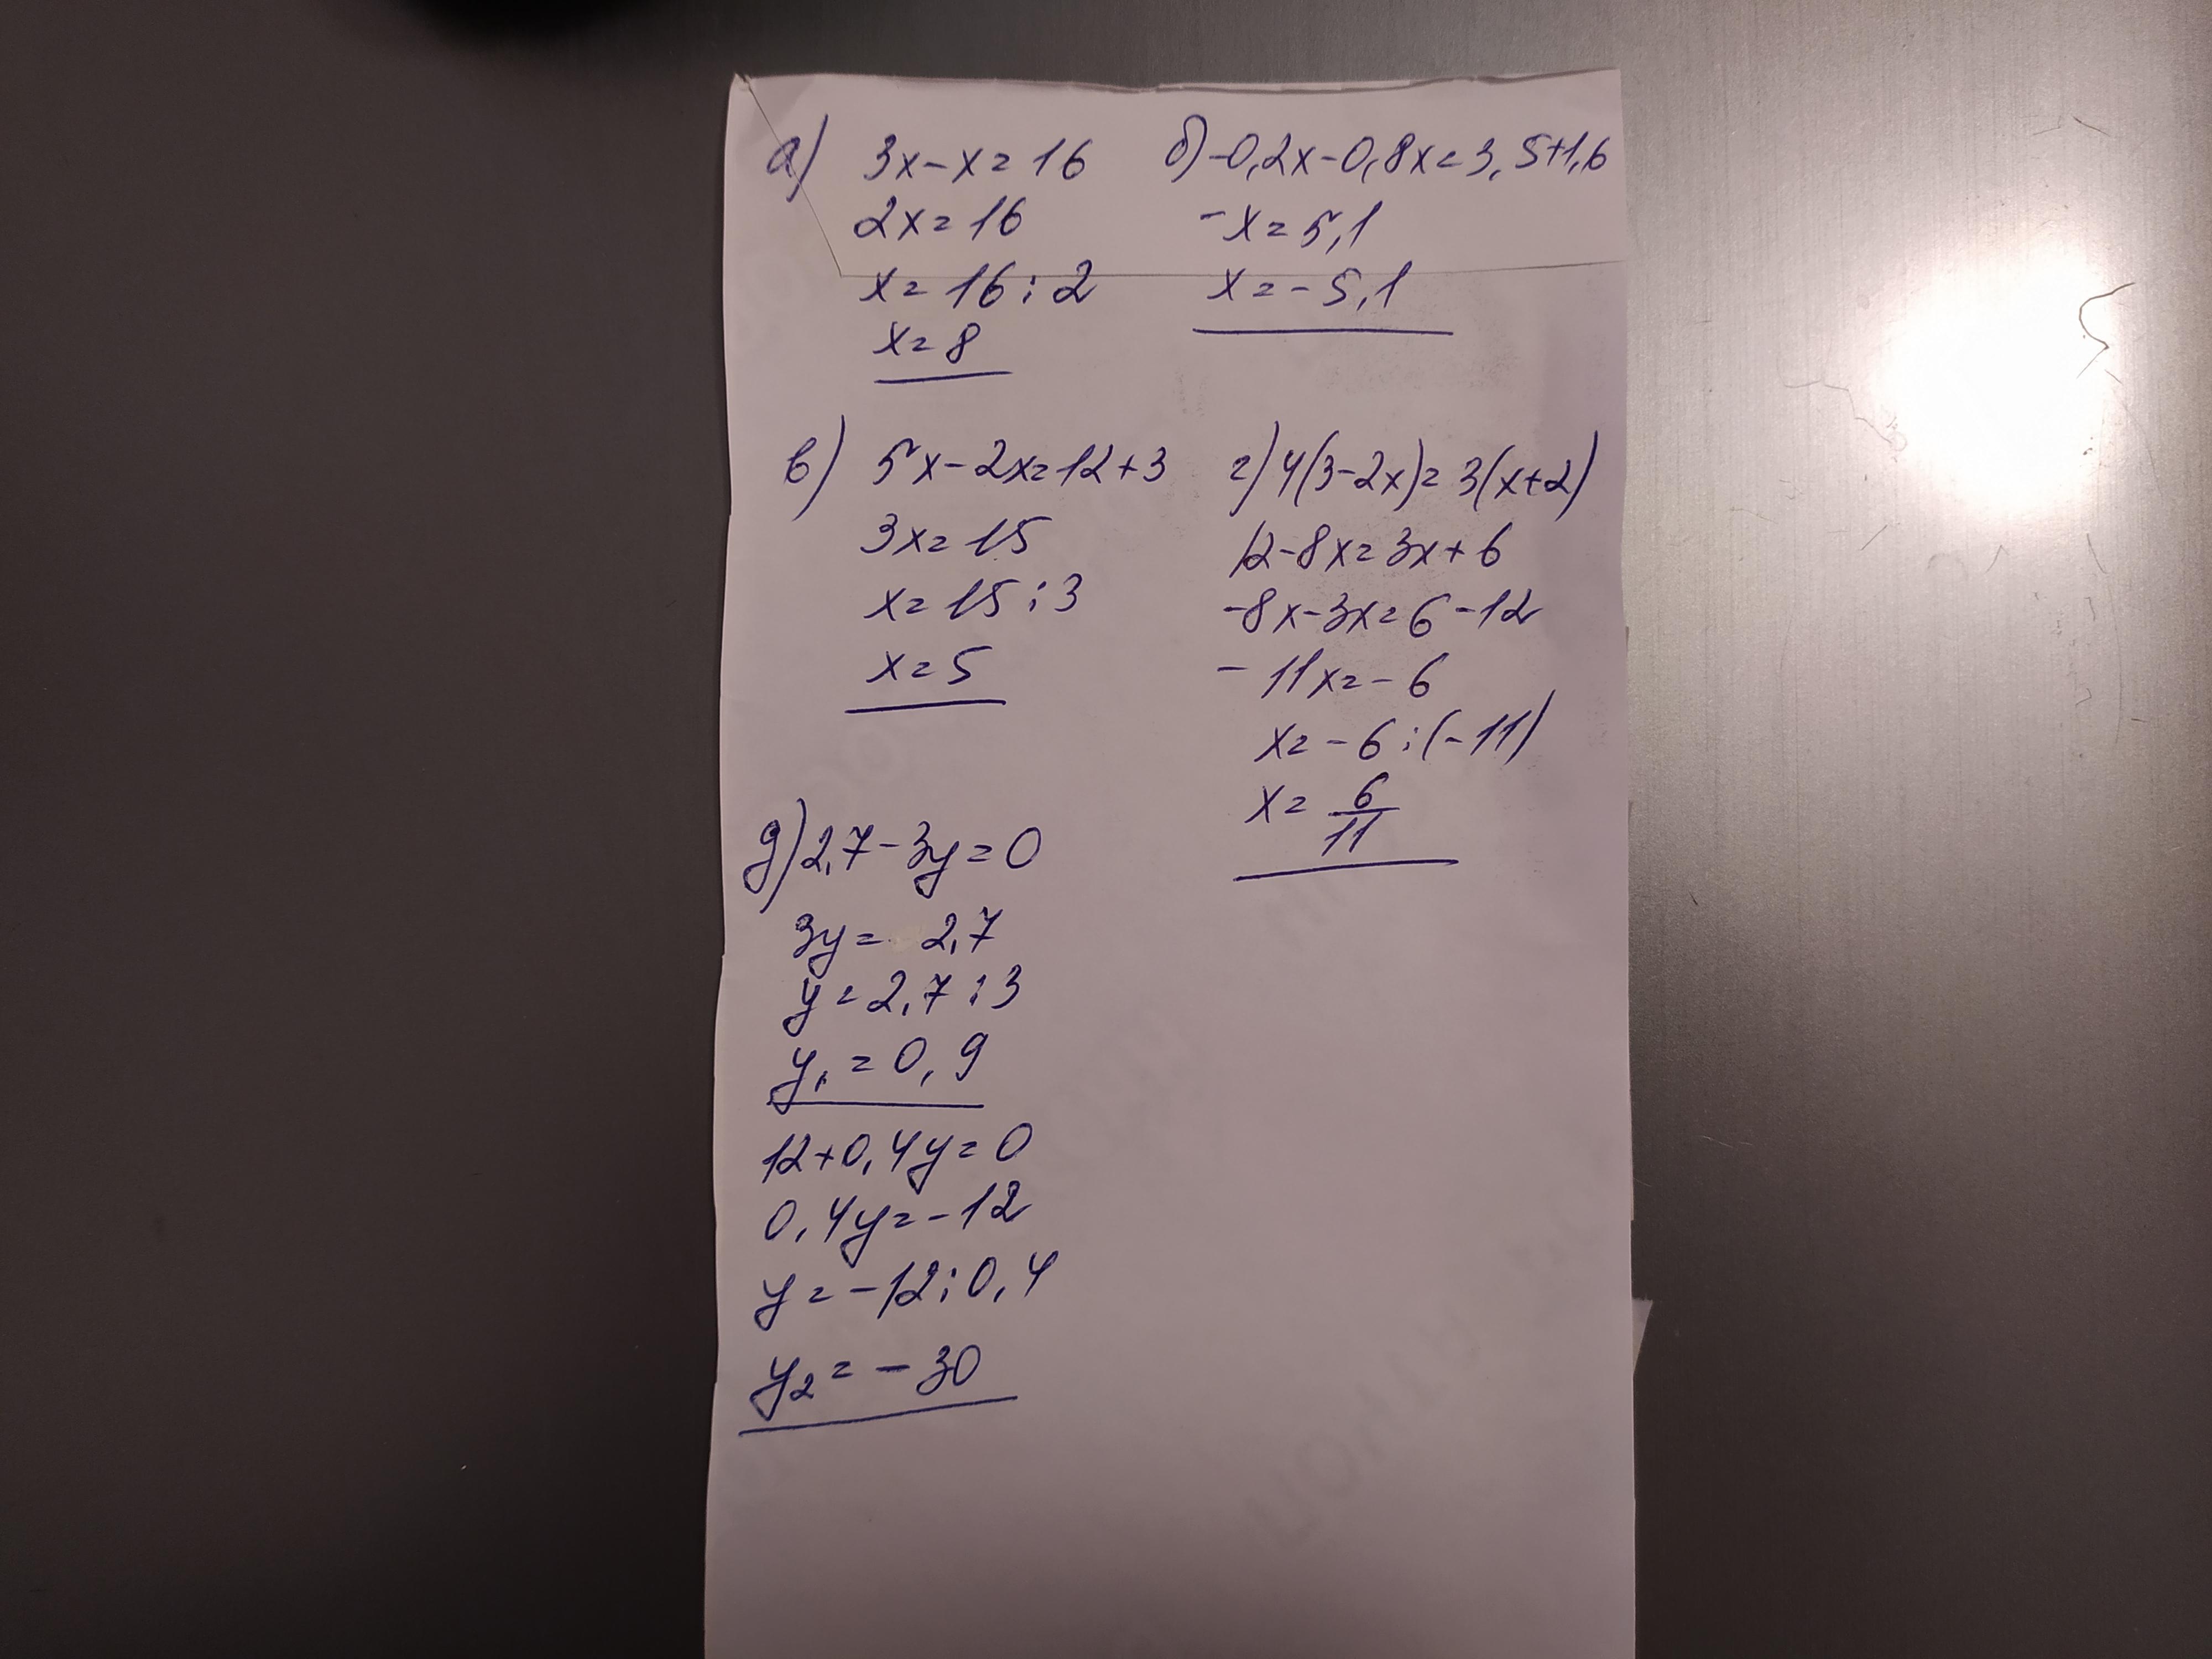 а) 3x-x=16
2x=16
x=16:2
x=8
б) -0,2x-0,8x=3,5+1,6
-x=5,1
x=-5,1
в) 5x-2x=12+3
3x=15
x=15:3
x=5
г) 4(3-2x)=3(x+2)
12-8x=3x+6
-8x-3x=6-12
-11x=-6
x=-6:(-11)
x=6/11
д) 2,7-3y=0
3y= 2,7
y=2,7:3
y₁=0,9
12+0,4y=0
0,4y=-12
y=-12:0,4
y₂=-30